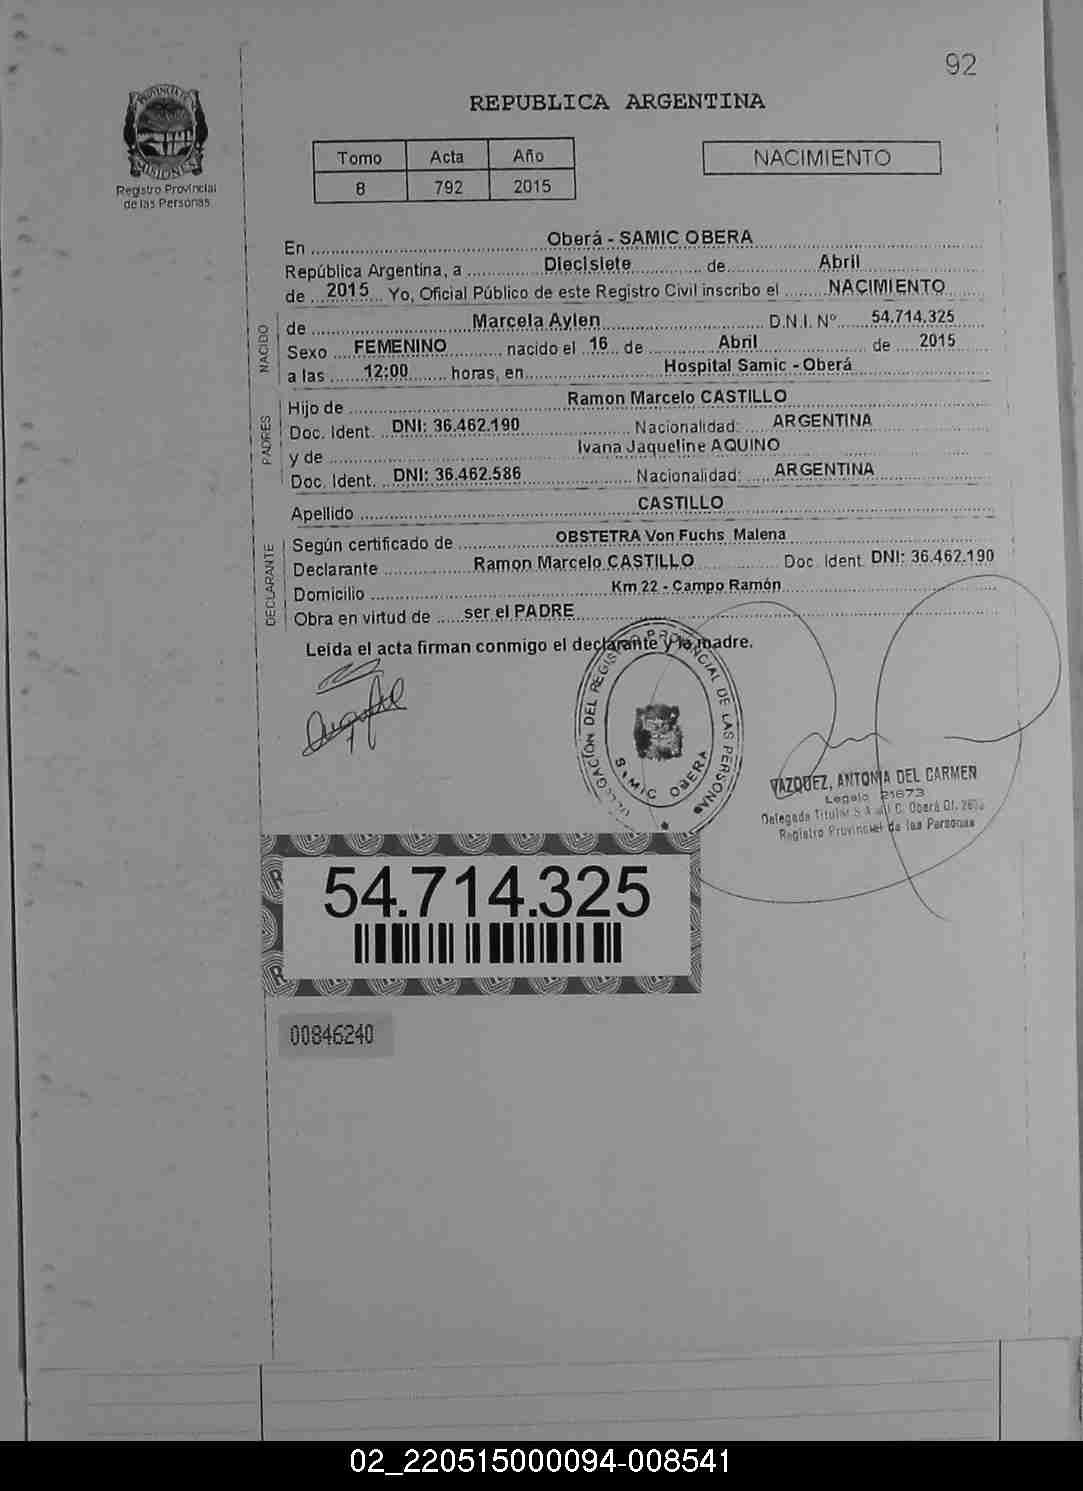 92
PROVINCIA DE
MISIONES
Registro Provincial
de las Personas
REPUBLICA ARGENTINA
Tomo Acta Año
8 792 2015
NACIMIENTO
En Oberá - SAMIC OBERA
República Argentina, a Diecisiete de Abril
de 2015 Yo, Oficial Público de este Registro Civil inscribo el NACIMIENTO
NACIDO
de Marcela Aylen D.N.I. Nº 54.714.325
Sexo FEMENINO nacido el 16 de Abril de 2015
a las 12:00 horas, en Hospital Samic - Oberá
PADRES
Hijo de Ramon Marcelo CASTILLO
Doc. Ident. DNI: 36.462.190 Nacionalidad: ARGENTINA
y de Ivana Jaqueline AQUINO
Doc. Ident. DNI: 36.462.586 Nacionalidad: ARGENTINA
Apellido CASTILLO
DECLARANTE
Según certificado de OBSTETRA Von Fuchs Malena
Declarante Ramon Marcelo CASTILLO Doc. Ident. DNI: 36.462.190
Domicilio Km 22 - Campo Ramón
Obra en virtud de ser el PADRE
Leida el acta firman conmigo el declarante y la madre.
DELEGACIÓN DEL REGISTRO PROVINCIAL DE LAS PERSONAS
SAMIC OBERA
VAZQUEZ, ANTONIA DEL CARMEN
Legajo 21673
Delegada Titular S.A.M.I.C. Oberá Of.
Registro Provincial de las Personas
54.714.325
00846240
02_220515000094-008541